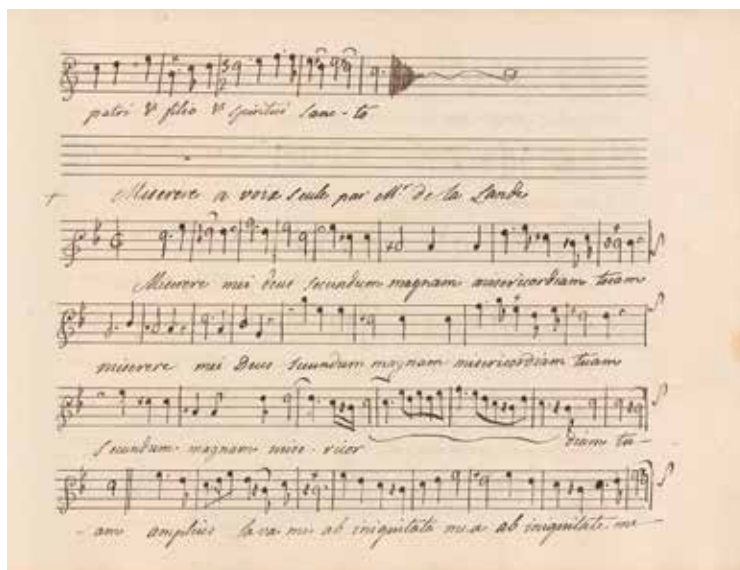 patri & filio & spiritui sanc-to
Miserere a voix seule par Mr de la Lande
Miserere mei deus secundum magnam misericordiam tuam
miserere mei Deus secundum magnam misericordiam tuam
secundum magnam mise-ricor diam tu-
-am amplius lava me ab iniquitate mea ab iniquitate me